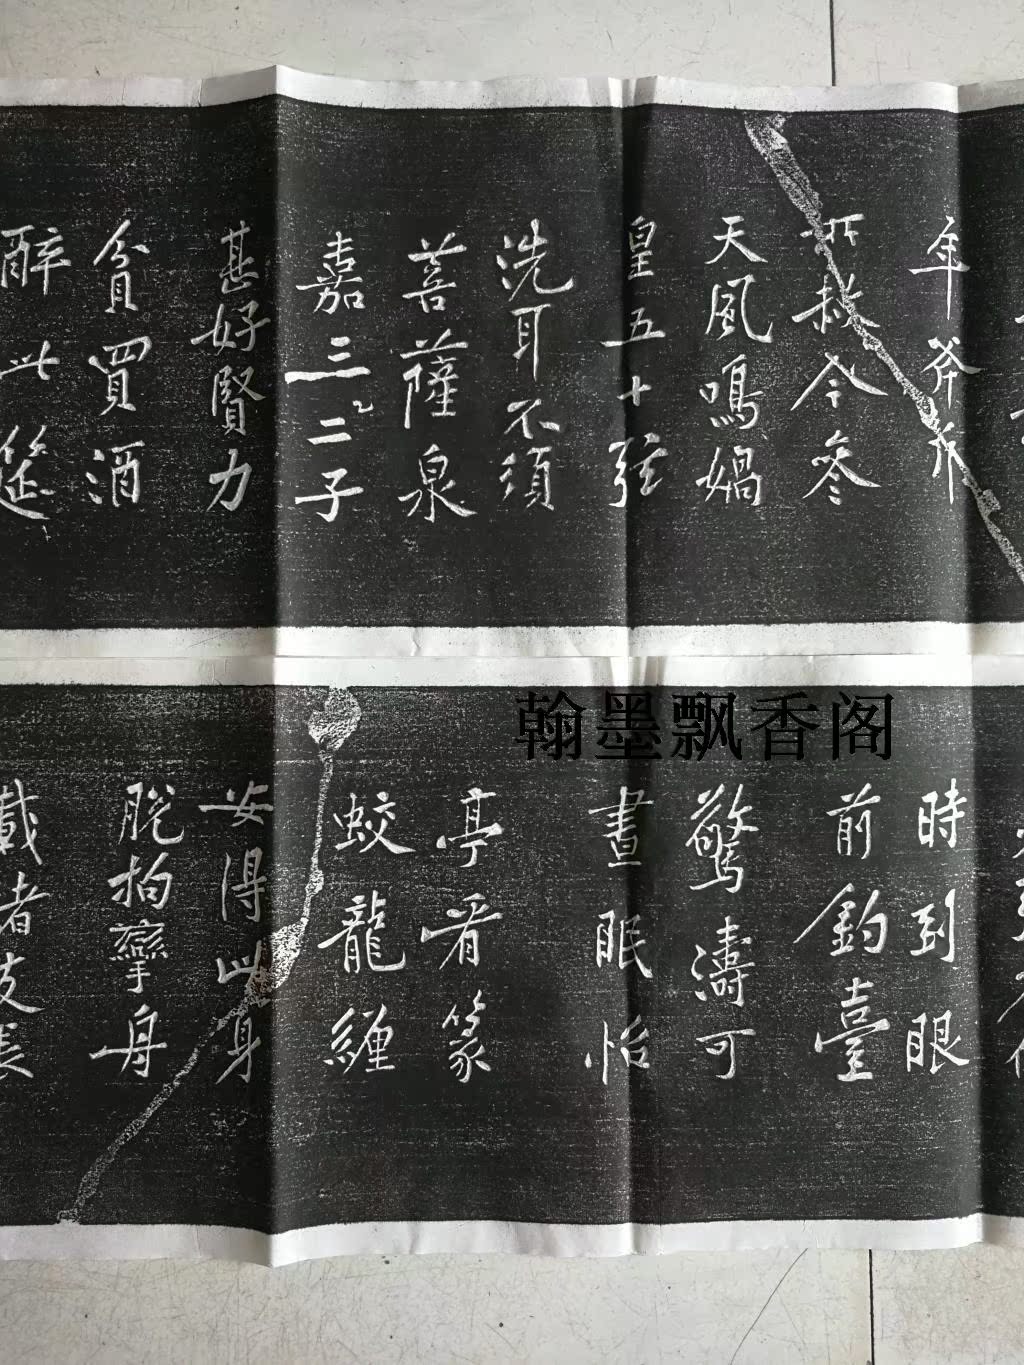 年斧斤
所赦今參
天風鳴媧
皇五十弦
洗耳不須
菩薩泉
嘉三二子
甚好賢力
貧買酒
醉此筵
翰墨飘香阁
時到眼
前釣臺
驚濤可
晝眠怡
亭看篆
蛟龍纏
安得此身
脫拘攣舟
載友長